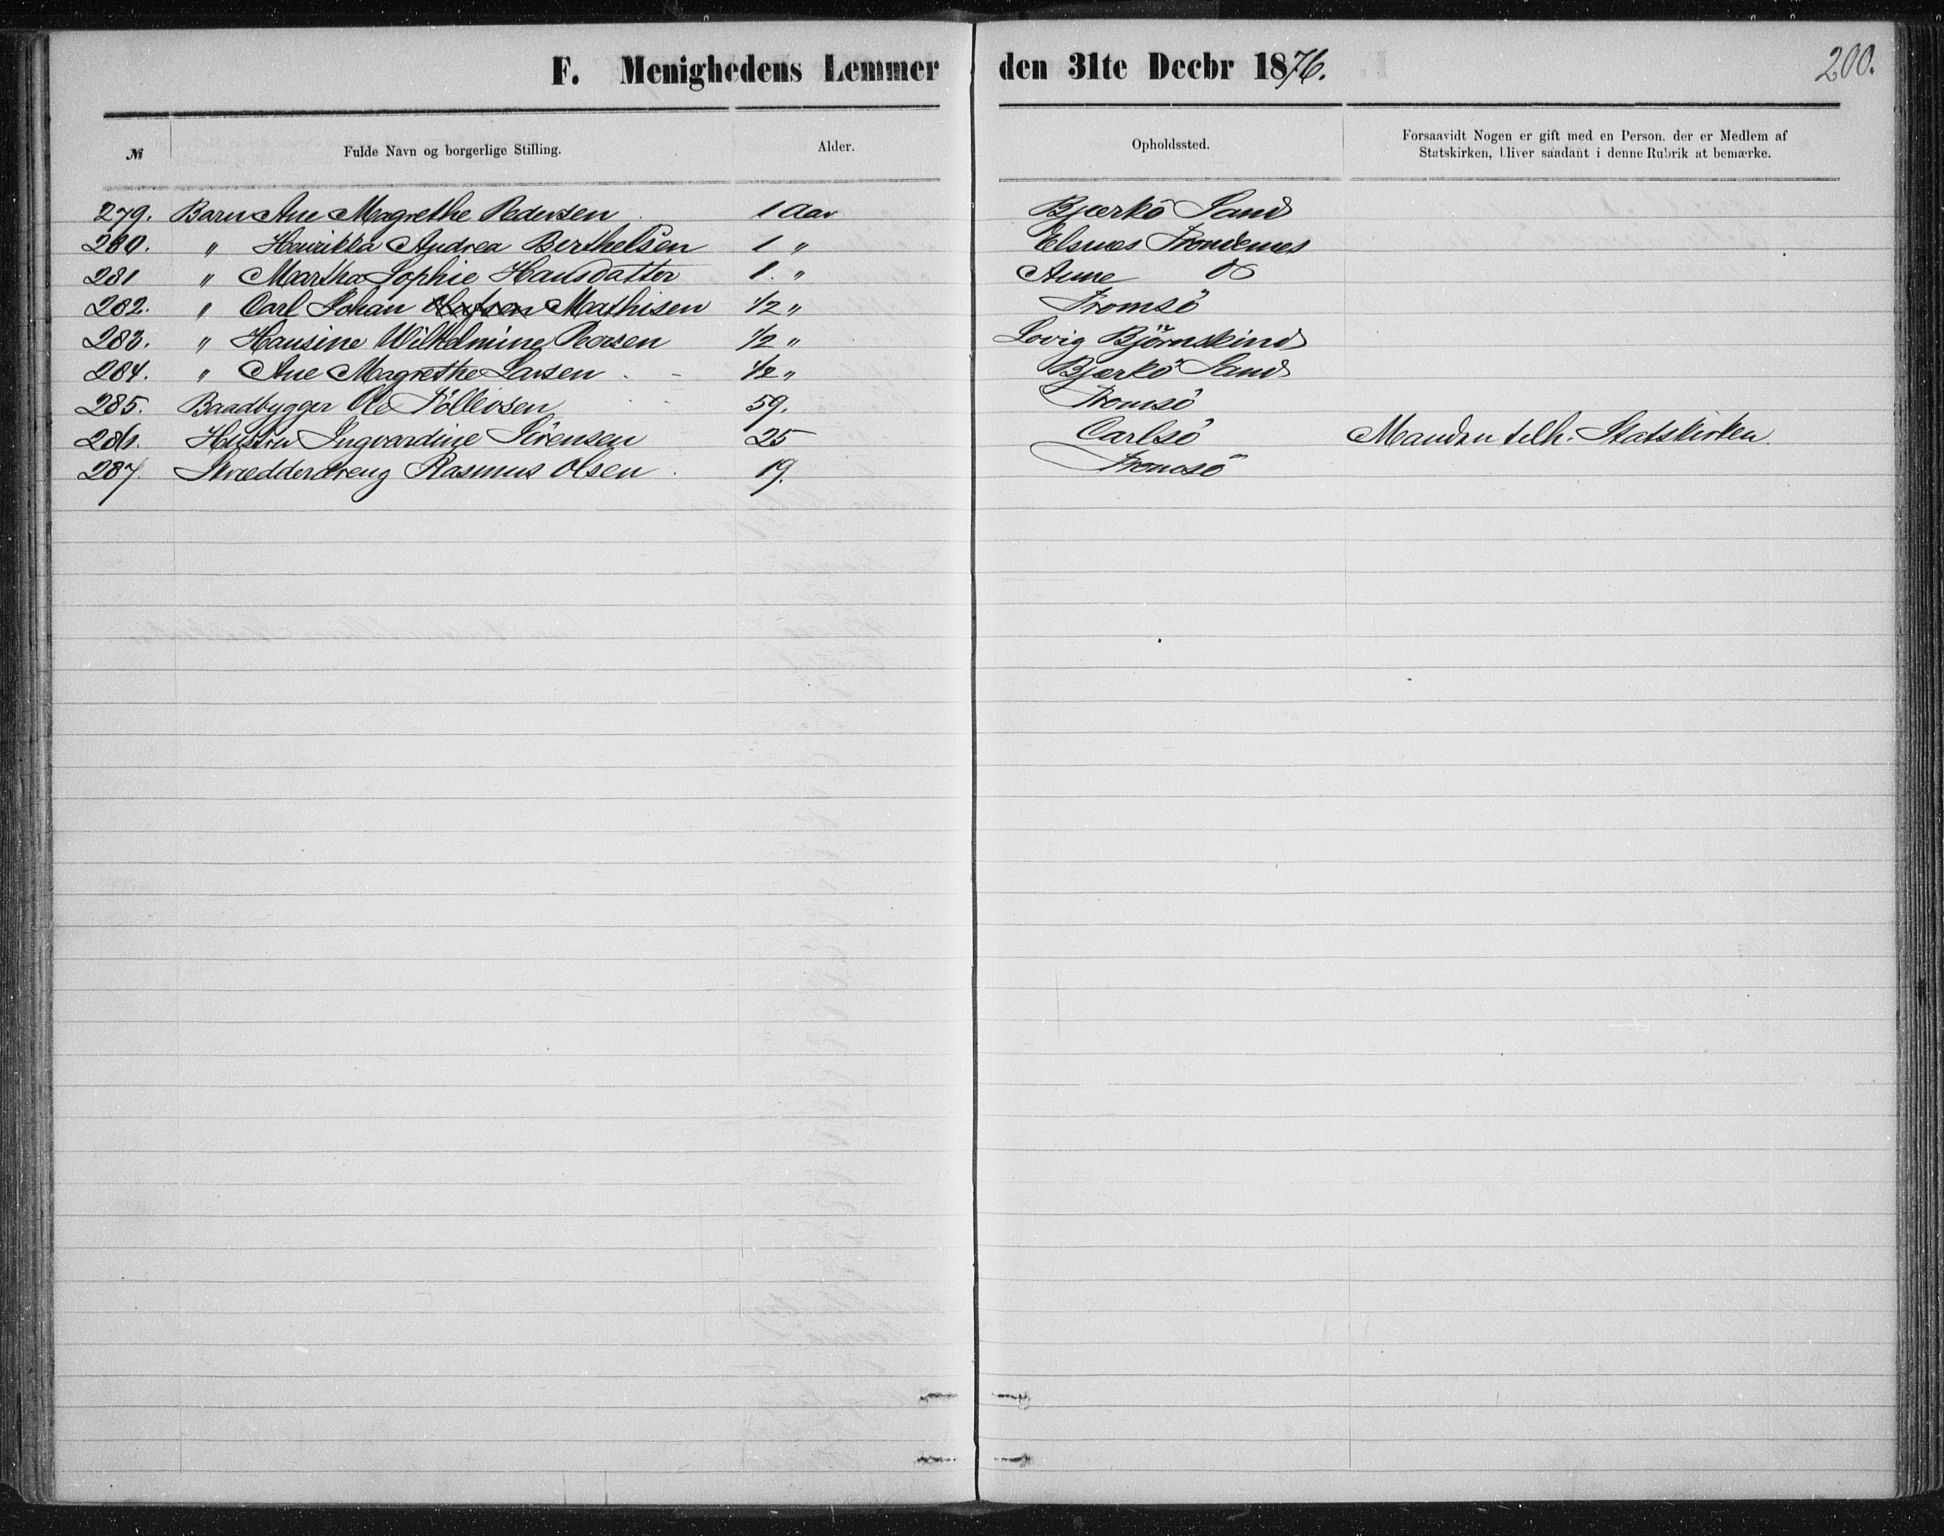 F. Menighedens Lemmer den 31te Decbr 1876. 200.
№ Fulde Navn og borgerlige Stilling. Alder. Opholdssted. Forsaavidt Nogen er gift med en Person, der er Medlem af
Statskirken, bliver saadant i denne Rubrik at bemærke.
279. Barn Ane Magrethe Pedersen 1 Aar Bjærkö Sand
280. " Henrikka Andrea Berthelsen 1 " Elsnæs Trondenæs
281 " Martha Sophie Hansdatter 1. " Aune do
282. " Carl Johan Mathisen 1/2 " Tromsö
283. " Hansine Wilhelmine Peersen 1/2 " Lovig Björnskind
284. " Ane Magrethe Larsen 1/2 " Bjærkö Sand
285. Baadbygger Ole Töllevsen 59. Tromsö
286. Hustru Ingvardine Sörensen 25 Carlsö Manden tilh. Statskirken.
287. Skrædderdreng Rasmus Olsen 19. Tromsö